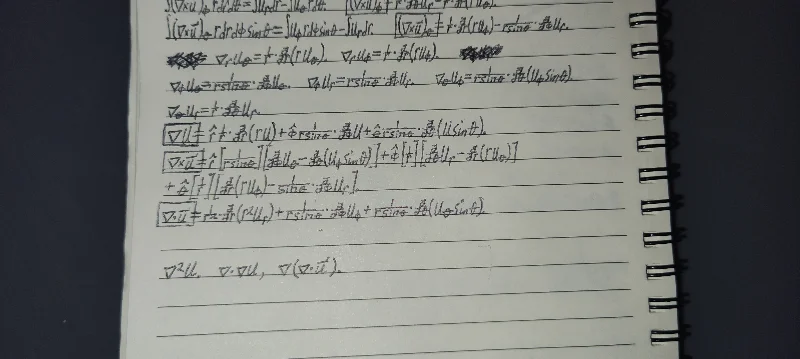 ∫(∇×u⃗)_Φ rdrdθ = ∫u_θrdθ - ∫u_r dr.
∫(∇×u⃗)_θ rdrdΦsinθ = ∫u_Φrdφsinθ - ∫u_r dr.
∇_r u_θ = 1/r · ∂/∂r(r u_θ). ∇_r u_Φ = 1/r · ∂/∂r(r u_Φ).
∇_Φ u_θ = 1/(r sinθ) · ∂/∂Φ u_θ. ∇_Φ u_r = 1/(r sinθ) · ∂/∂Φ u_r. ∇_θ u_Φ = 1/(r sinθ) · ∂/∂θ(u_Φ sinθ)
∇_θ u_r = 1/r · ∂/∂θ u_r.
∇u = r̂ 1/r · ∂/∂r(ru) + Φ̂ 1/(r sinθ) · ∂/∂Φ u + θ̂ 1/(r sinθ) · ∂/∂θ(u sinθ).
∇×u⃗ = r̂[1/(r sinθ)][∂/∂Φ u_θ - ∂/∂θ(u_Φ sinθ)] + Φ̂[1/r][∂/∂θ u_r - ∂/∂r(r u_θ)]
+ θ̂[1/r][∂/∂r(r u_Φ) - 1/sinθ · ∂/∂Φ u_r].
∇·u⃗ = 1/r² · ∂/∂r(r² u_r) + 1/(r sinθ) · ∂/∂Φ u_Φ + 1/(r sinθ) · ∂/∂θ(u_θ sinθ).
∇²u. ∇·∇u, ∇(∇·u⃗).